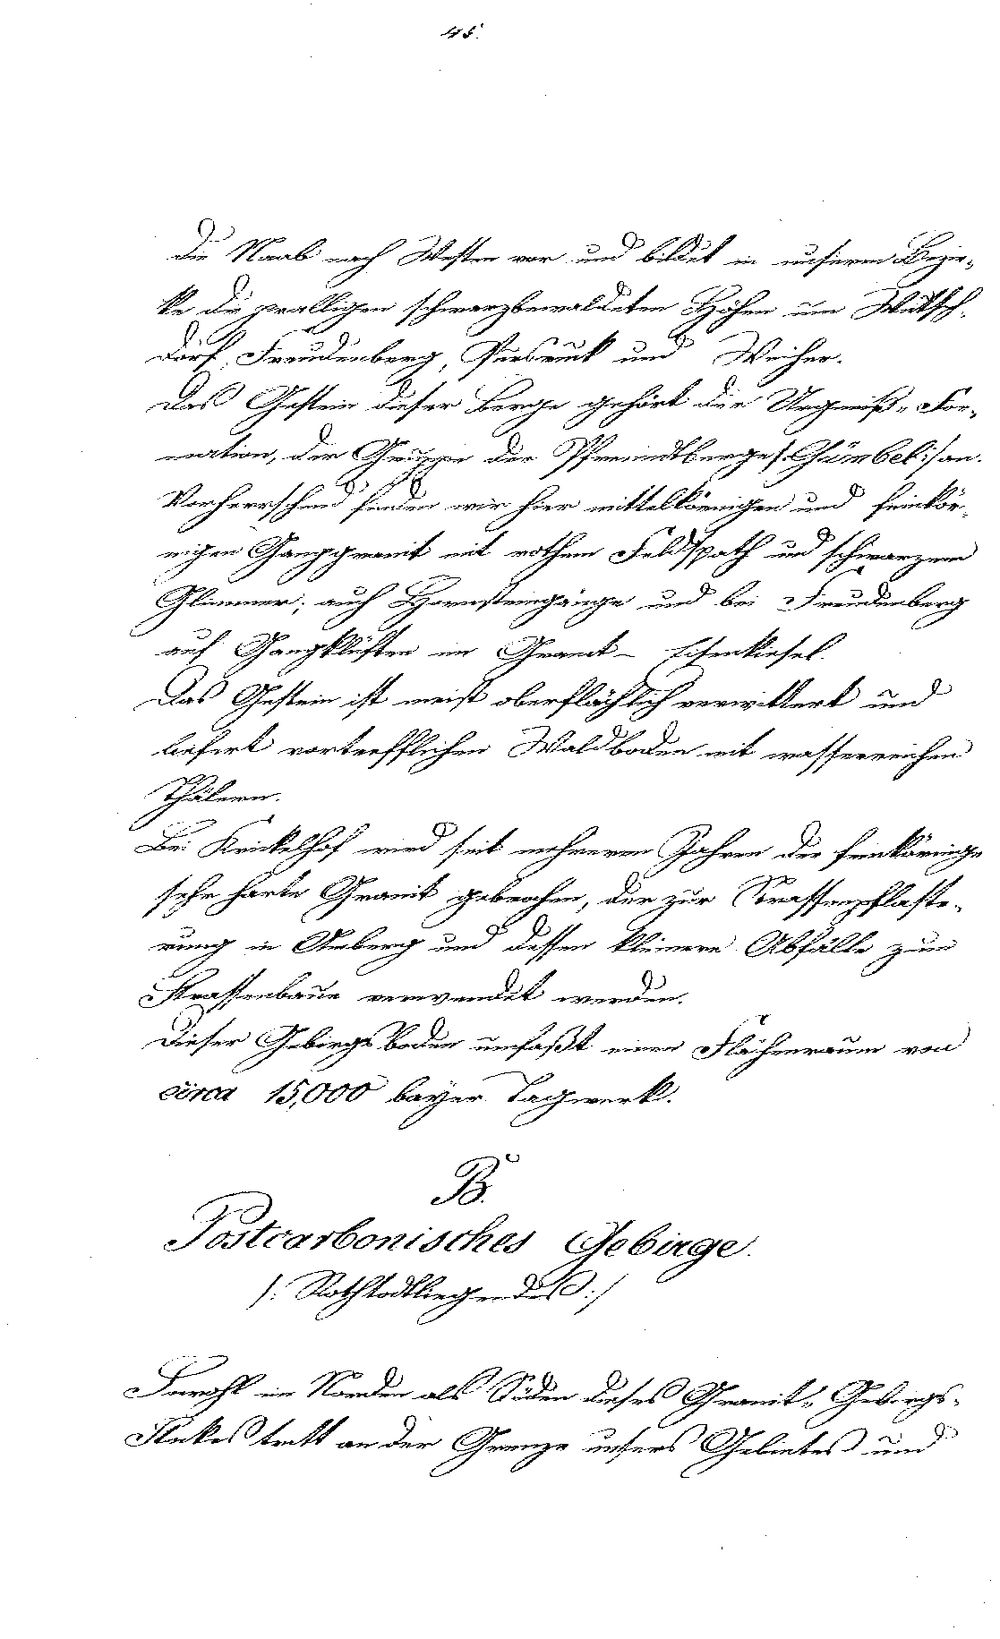 45.
die Naab nach Westen vor und bildet in unserem Bezir-
ke die pralligen schwarzbewaldeten Höhen um Wutsch-
dorf, Freudenberg, Pursruck und Weiher.
Das Gestein dieser Berge gehört der Urgneiß-For-
mation, der Gruppe der Pfreimdtberge /:Gümbel:/ an.
Vorherrschend finden wir hier mittelkörnigen und feinkör-
nigen Ganggranit mit rothem Feldspath und schwarzem
Glimmer; auch Hornsteingänge und bei Freudenberg
auf Gangklüften im Granit – Eisenkiesel.
Das Gestein ist meist oberflächlich verwittert und
liefert vortrefflichen Waldboden mit wasserreichen
Thälern.
Bei Krickelhof wird seit mehreren Jahren der feinkörnige
sehr harte Granit gebrochen, der zur Strassenpflaste-
rung in Amberg und dessen kleinere Abfälle zum
Strassenbaue verwendet werden.
Dieser Gebirgsboden umfaßt einen Flächenraum von
circa 15,000 bayer. Tagwerk.
B.
Postcarbonisches Gebirge.
/: Rothtodtliegendes :/
Sowohl im Norden als Süden dieses Granit-Gebirgs-
Stockes tritt an der Grenze unsers Gebietes und